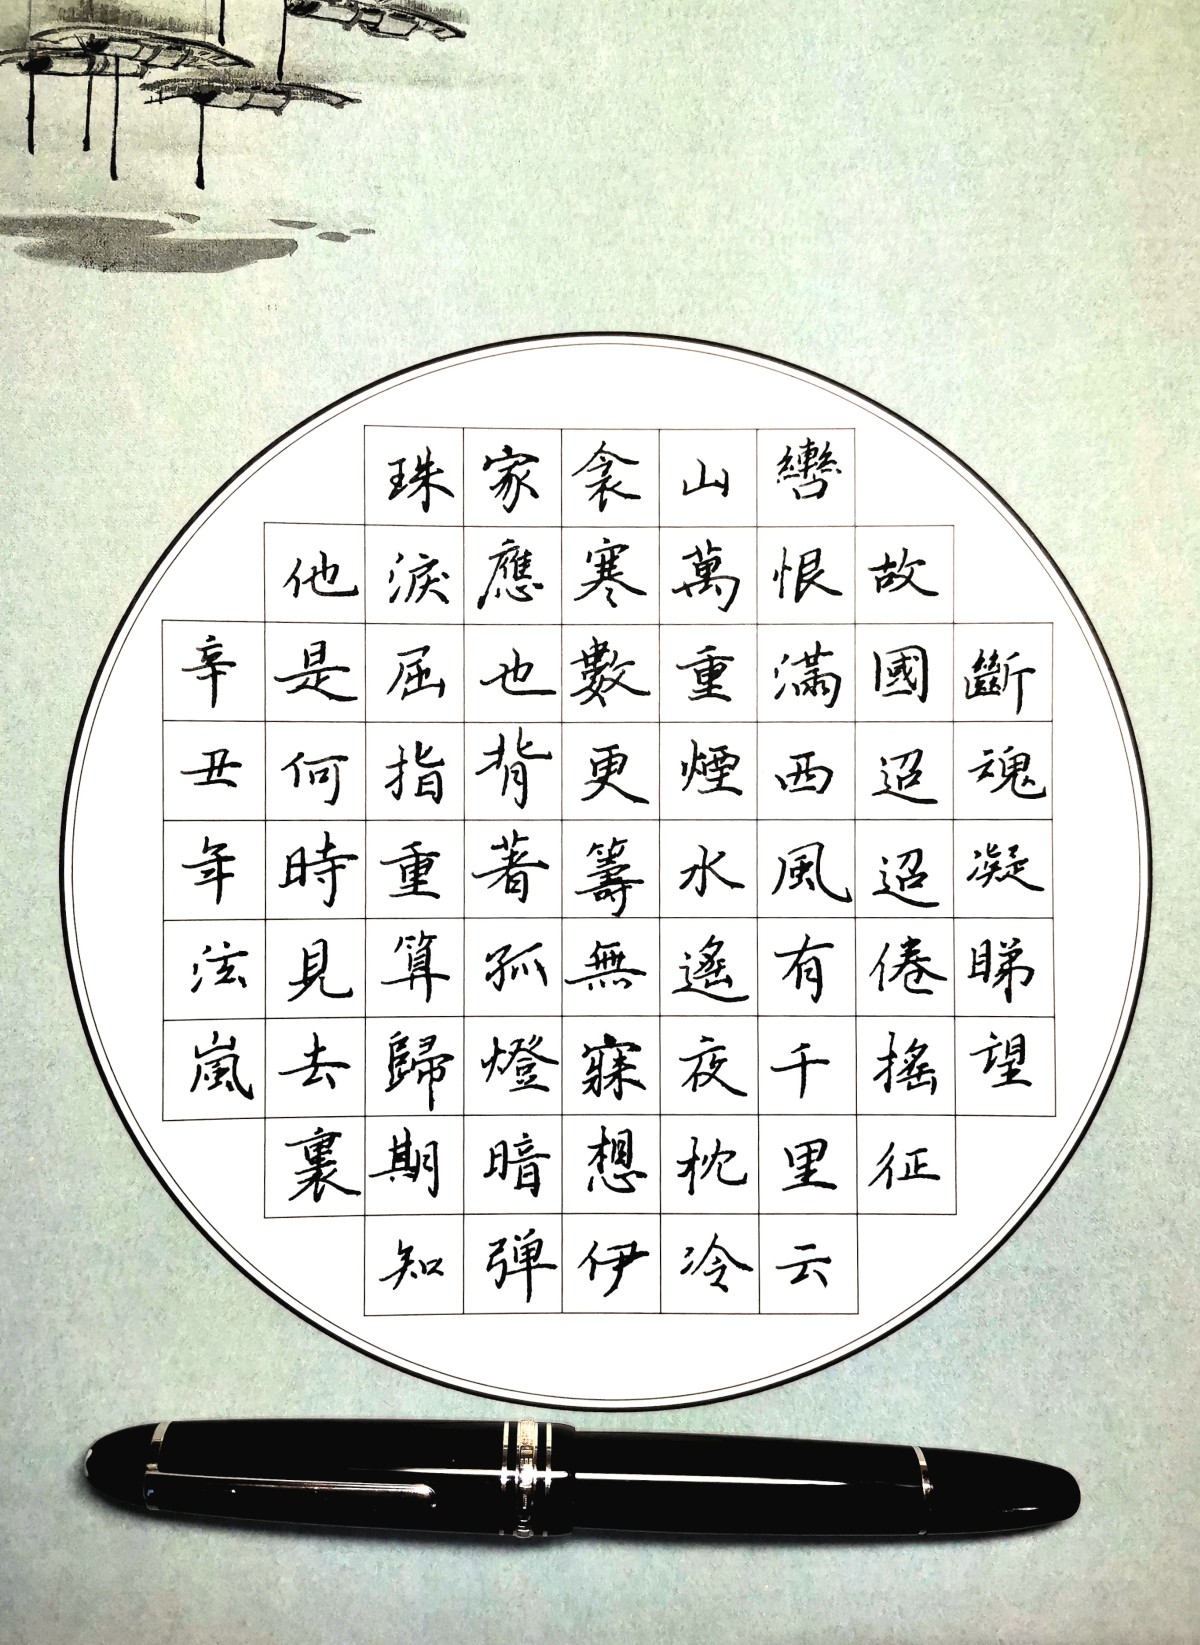 斷魂凝睇望
故國迢迢倦搖征
轡恨滿西風有千里云
山萬重煙水遙夜枕冷
衾寒數更籌無寐想伊
家應也背著孤燈暗弹
珠淚屈指重算歸期知
他是何時見去裏
辛丑年泫嵐